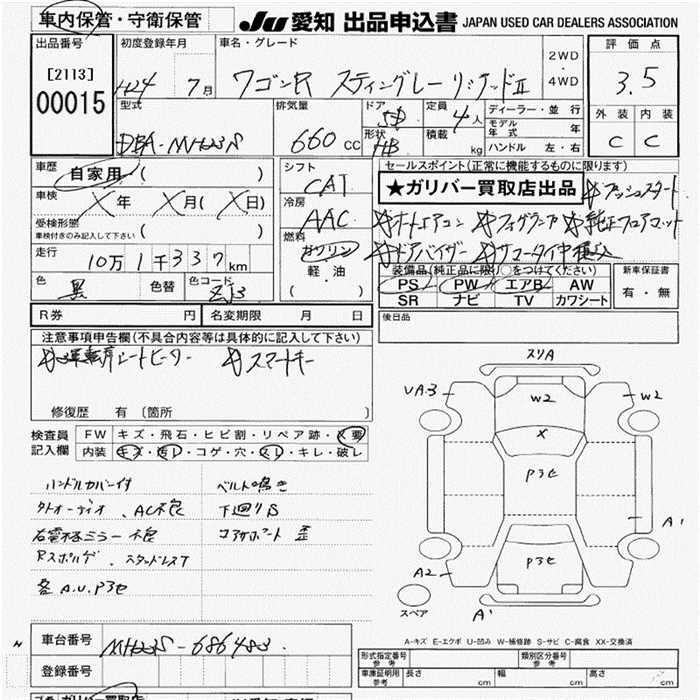 車内保管・守衛保管
JU 愛知 出品申込書 JAPAN USED CAR DEALERS ASSOCIATION
出品番号
[2113]
00015
初度登録年月
H24 7月
車名・グレード
ワゴンR スティングレー リミテッドⅡ
2WD
4WD
評価点
3.5
型式
DBA-MH23S
排気量
660 cc
ドア
5D
形状
HB
定員
4人
積載
kg
ディーラー・並行
モデル年式 年
ハンドル 左・右
外装 内装
C C
車歴
自家用 ( )
車検
X年 X月(X日)
受検形態
車検付きのみ記入して下さい ( )
走行
10万1千337km
色
黒
色替
色コード
ZJ3
シフト
CAT
冷房
AAC
燃料
ガソリン
軽油
( )
セールスポイント(正常に機能するものに限ります)
★ガリバー買取店出品 プッシュスタート
オートエアコン フォグランプ 純正フロアマット
ドアバイザー
装備品(純正品に限り○をつけてください)
PS PW エアB AW
SR ナビ TV カワシート
新車保証書
有・無
R券 円 名変期限 月 日
後日品
注意事項申告欄(不具合内容等は具体的に記入して下さい)
運転席シートヒーター スマートキー
修復歴 有(箇所 )
検査員記入欄
FW キズ・飛石・ヒビ割・リペア跡・X要
内装 キズ・汚レ・コゲ・穴・スレ・キレ・破レ
ハンドルカバー付 ベルト鳴き
外オーディオ、AC不良 下廻りS
右電格ミラー不良 コアサポート歪
Rスポルゲ、スタッドレスT
各A.U.Pスセ
スリA
UA3
W2
W2
X
Pスセ
A1
Pスセ
A2
スペア
A1
A-キズ E-エクボ U-凹み W-補修跡 S-サビ C-腐食 XX-交換済
車台番号
MH23S-686483
登録番号
形式指定番号 参考
類別区分番号 参考
車庫証明用 参考 長さ cm 幅 cm 高さ cm
ガリバー買取店